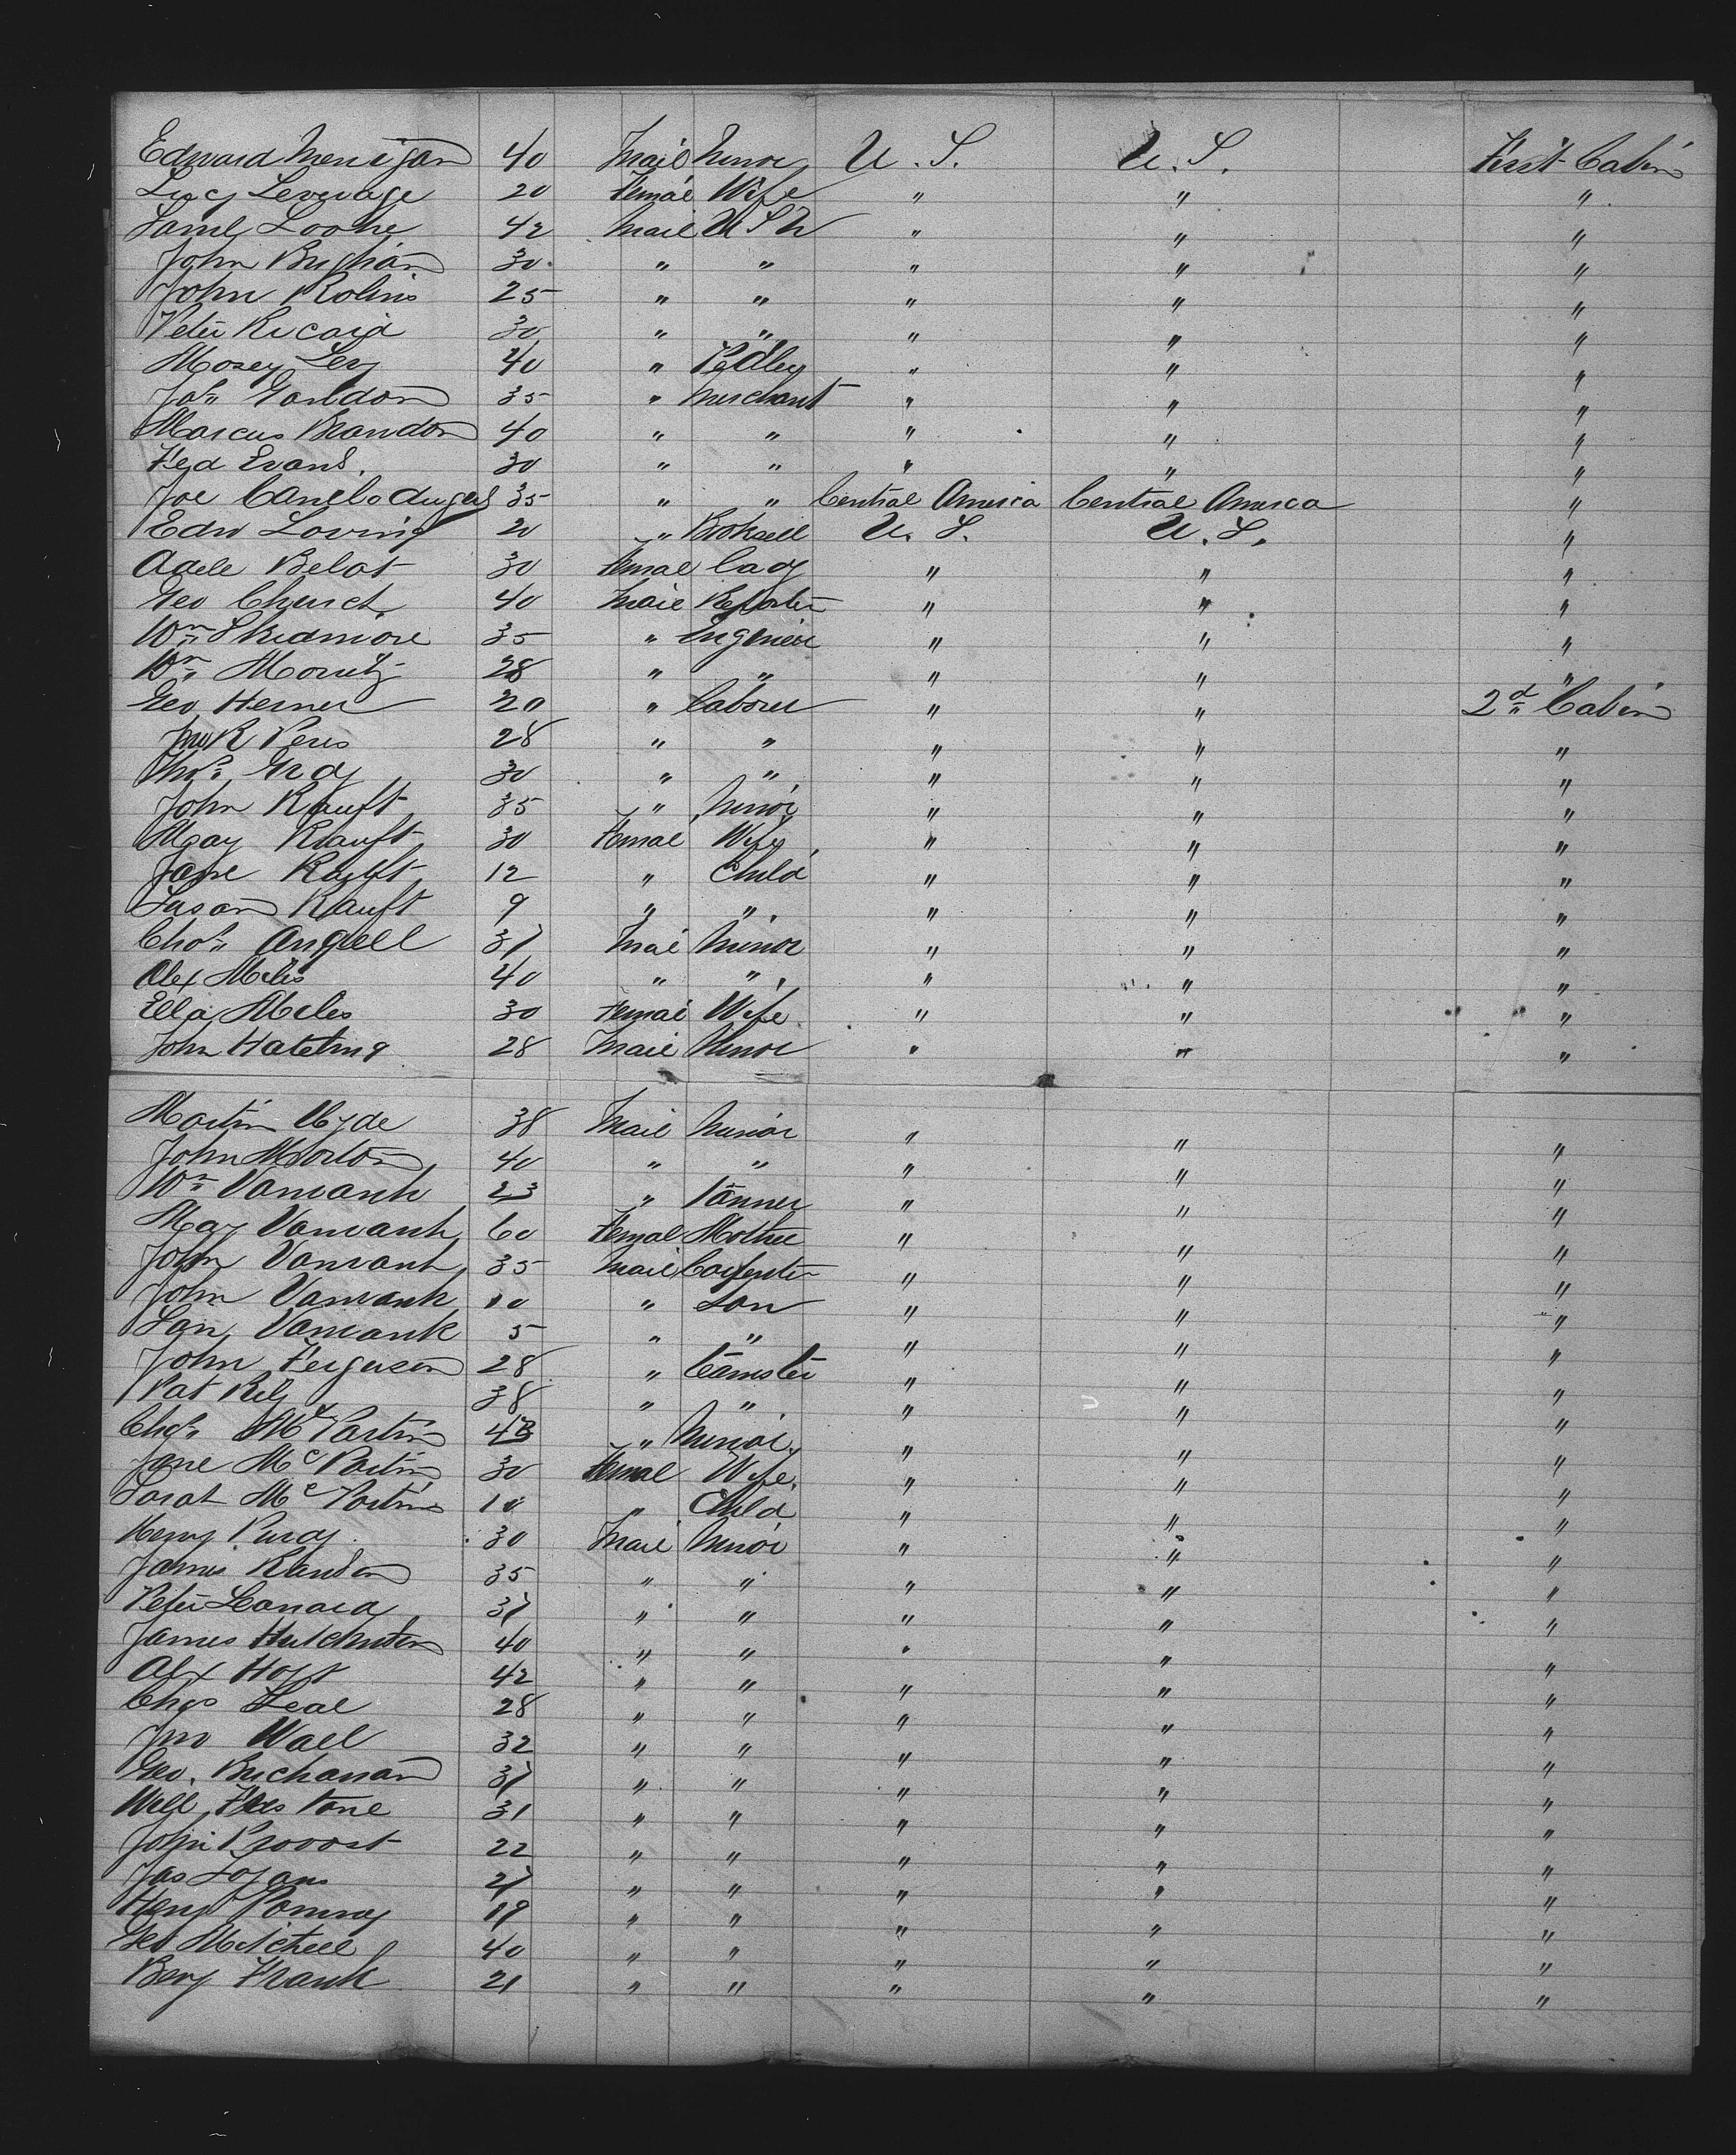 Edward Merrigan 40 Male Minor U. S. U. S. First Cabin
Lucy Leverage 20 Female Wife " " "
Saml Looke 42 Male U S N " " "
John Brighan 30 " " " " "
John Rolins 25 " " " " "
Peter Ricard 30 " " " " "
Mosey Levy 40 " Pedley " " "
Joh Gouldon 35 " Merchant " " "
Marcus Brandon 40 " " " " "
Fed Evans. 30 " " " " "
Joe 35 " " Central America Central America "
Edw Loving 20 " Booksell U. S. U. S. "
Adele Belot 30 Female Lady " " "
Geo Church 40 Male Reporter " " "
Wm Skidmore 35 " Engineer " " "
Wm Moritz 28 " " " " "
Geo Herner 20 " Laborer " " 2d Cabin
Jno R Peres 28 " " " " "
Thos Gray 30 " " " " "
John Kauft 35 " Minor " " "
May Kauft 30 Female Wife " " "
Jane Kauft 12 " Child " " "
Susan Kauft 9 " " " " "
Chas Angell 37 Male Minor " " "
Alex Miles 40 " " " " "
Ella Miles 30 Female Wife " " "
John 28 Male Minor " " "
Martin Hyde 38 Male Minor " " "
John Morton 40 " " " " "
Wm Vanvank 23 " Tanner " " "
May Vanvank 60 Female Mother " " "
John Vanvank 35 Male Carpenter " " "
John Vanvank 10 " Son " " "
San Vanvank 5 " " " " "
John Ferguson 28 " Teamster " " "
Pat Rily 38 " " " " "
Chas Mc Partin " Minor " " "
Jane Mc Partin 30 Female Wife. " " "
Sarah Mc Partin 10 " Child " " "
Henry Purdy 30 Male Minor " " "
James Randon 35 " " " " "
Peter Lanard 37 " " " " "
James Hutchinson 40 " " " " "
Alx Hoyt 42 " " " " "
Chas Leal 28 " " " " "
Jno Wall 32 " " " " "
Geo. Buchanan 37 " " " " "
Will 31 " " " " "
John Provost 22 " " " " "
Jas Logans 27 " " " " "
Heny Pomroy 19 " " " " "
Geo Mitchell 40 " " " " "
Benj Frank 21 " " " " "